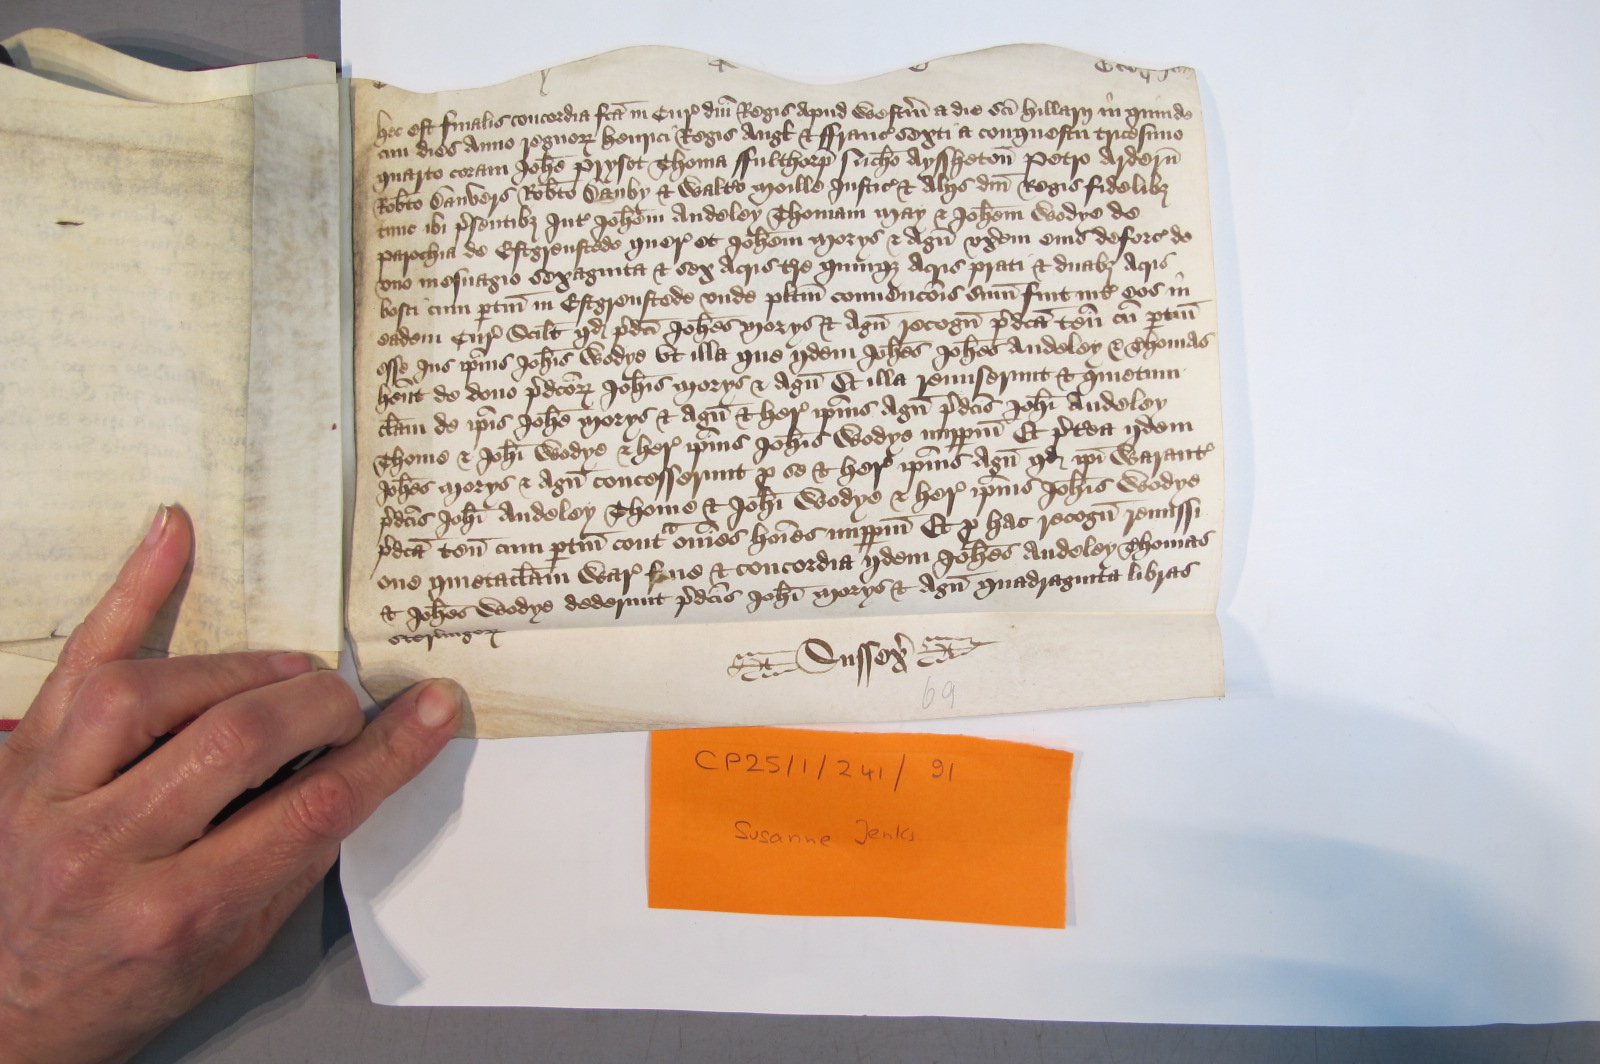 hec est finalis concordia fc̄a in Cur̄ dn̄i Regis apud Westm̄ a die Sc̄i Hillarij in quinde
cim dies Anno regnoꝝ Henrici Regis Angł & ffranc̄ sexti a conquestu tricesimo
quarto coram Joh̄e Prysot Thoma ffulthorp̄ Nich̄o Ayssheton̄ Petro Ardern̄
Rob̄to Danvers Rob̄to Danby & Walt̄o Moille Justic̄ & Alijs dn̄i Regis fidelibꝫ
tunc ibi p̄sentibꝫ Int̄ Joh̄em Audeley Thomam May & Joh̄em Wodye de
parochia de Estgrenstede quer̄ et Joh̄em Morys & Agn̄ vx̄em eius deforc̄ de
vno mesuagio sexaginta & sex Acris t̄re quinqꝫ Acris prati & duabꝫ Acris
bosci cum ꝑtin̄ in Estgrenstede vnde pl̄itm̄ convenc̄ōis sum̄ fuit int̄ eos in
eadem Cur̄ Scilt̄ qd̄ p̄dc̄i Joh̄es Morys & Agn̄ recogn̄ p̄dc̄a ten̄ cū ꝑtin̄
esse Jus ip̄ius Joh̄is Wodye vt illa que ijdem Joh̄es Joh̄es Audeley & Thomas
hēnt de dono p̄dc̄ōꝝ Joh̄is Morys & Agn̄ Et illa remiserunt & quietum
clam̄ de ip̄is Joh̄e Morys & Agn̄ & her̄ ip̄ius Agn̄ p̄dc̄is Joh̄i Audeley
Thome & Joh̄i Wodye & her̄ ip̄ius Joh̄is Wodye imꝑꝑm̄ Et p̄t̄ea ijdem
Joh̄es Morys & Agn̄ concesserunt ꝑ se & her̄ ip̄ius Agn̄ qd̄ ip̄i Warant̄
p̄dc̄is Joh̄i Audeley Thome & Joh̄i Wodye & her̄ ip̄ius Joh̄is Wodye
p̄dc̄a ten̄ cum ꝑtin̄ contᵃ om̄es hōies imꝑꝑm̄ Et ꝑ hac recogn̄ remissi
one quietaclam̄ War̄ fine & concordia ijdem Joh̄es Audeley Thomas
& Joh̄es Wodye dederunt p̄dc̄is Joh̄i Morys & Agn̄ quadraginta libras
sterlingoꝝ
Sussex̄
69
CP25/1/241/91
Susanne Jenks